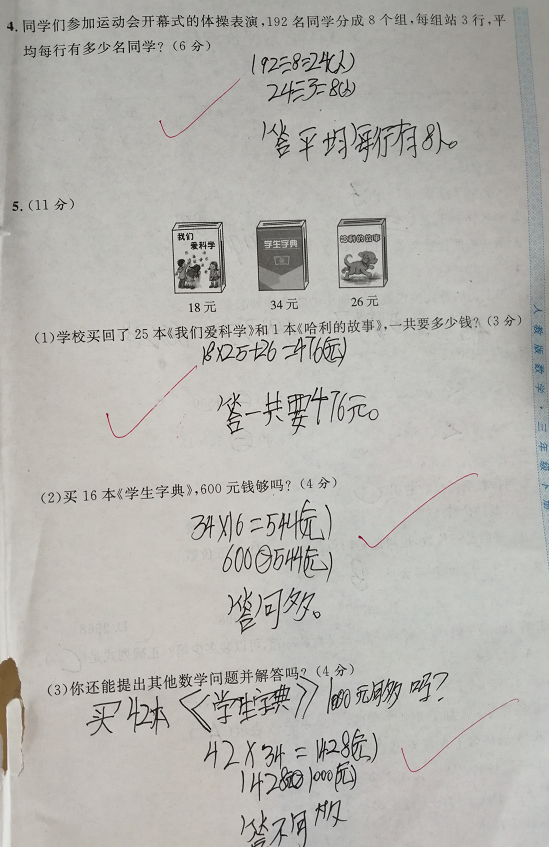 4. 同学们参加运动会开幕式的体操表演,192名同学分成8个组,每组站3行,平
均每行有多少名同学?(6分)
192÷8=24(人)
24÷3=8(人)
答平均每行有8人。
5.(11分)
我们
爱科学
学生字典
哈利的故事
18元
34元
26元
(1)学校买回了25本《我们爱科学》和1本《哈利的故事》,一共要多少钱?(3分)
18×25+26=476(元)
答一共要476元。
(2)买16本《学生字典》,600元钱够吗?(4分)
34×16=544(元)
600>544(元)
答可多。
(3)你还能提出其他数学问题并解答吗?(4分)
买42本《学生字典》1000元够吗?
42×34=1428(元)
1428>1000(元)
答不够
人教版数学·三年级下册